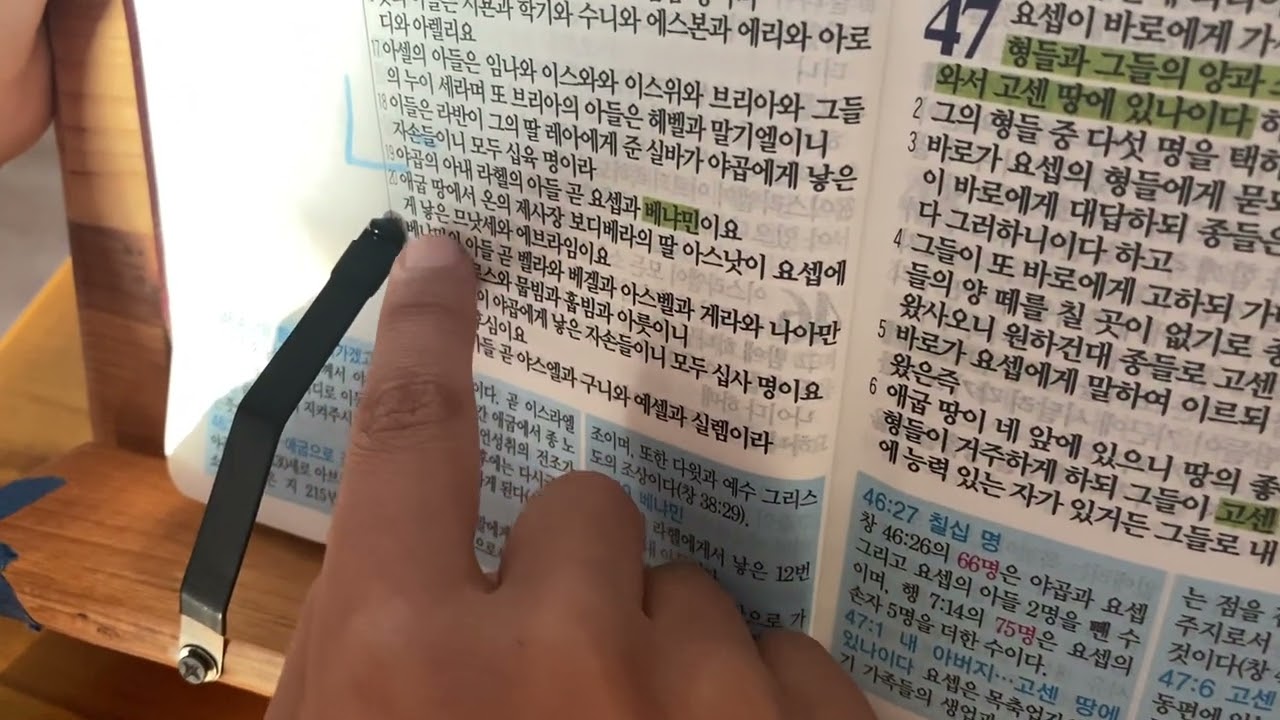 아들은 시본과 학기와 수니와 에스본과 에리와 아로
디와 아렐리요
17 아셀의 아들은 임나와 이스와와 이스위와 브리아와 그들
의 누이 세라며 또 브리아의 아들은 헤벨과 말기엘이니
18 이들은 라반이 그의 딸 레아에게 준 실바가 야곱에게 낳은
자손들이니 모두 십육 명이라
19 야곱의 아내 라헬의 아들 곧 요셉과 베냐민이요
20 애굽 땅에서 온의 제사장 보디베라의 딸 아스낫이 요셉에
게 낳은 므낫세와 에브라임이요
베냐민의 아들 곧 벨라와 베겔과 아스벨과 게라와 나아만
로스와 뭅빔과 훕빔과 아룻이니
이 야곱에게 낳은 자손들이니 모두 십사 명이요
후심이요
아들 곧 야스엘과 구니와 예셀과 실렘이라
가겠고
지켜주시
애굽으로
지 215년
이다. 곧 이스라엘
간 애굽에서 종 노
언성취의 전조가
후에는 다시
게 된다
조이며, 또한 다윗과 예수 그리스
도의 조상이다(창 38:29).
베냐민
라헬에게서 낳은 12번
47
요셉이 바로에게 가
형들과 그들의 양과
와서 고센 땅에 있나이다 하
2 그의 형들 중 다섯 명을 택하
3 바로가 요셉의 형들에게 묻되
이 바로에게 대답하되 종들은
다 그러하니이다 하고
4 그들이 또 바로에게 고하되 가
들의 양 떼를 칠 곳이 없기로 종
왔사오니 원하건대 종들로 고센
5 바로가 요셉에게 말하여 이르되
왔은즉
6 애굽 땅이 네 앞에 있으니 땅의 좋
형들이 거주하게 하되 그들이 고센
에 능력 있는 자가 있거든 그들로 내
46:27 칠십 명
창 46:26의 66명은 야곱과 요셉
그리고 요셉의 아들 2명을 뺀 수
이며, 행 7:14의 75명은 요셉의
손자 5명을 더한 수이다.
47:1 내 아버지…고센 땅에
있나이다 요셉은 목축업
기 가족들의 생업과
는 점을
주지로서
것이다(창
47:6 고센
동편에